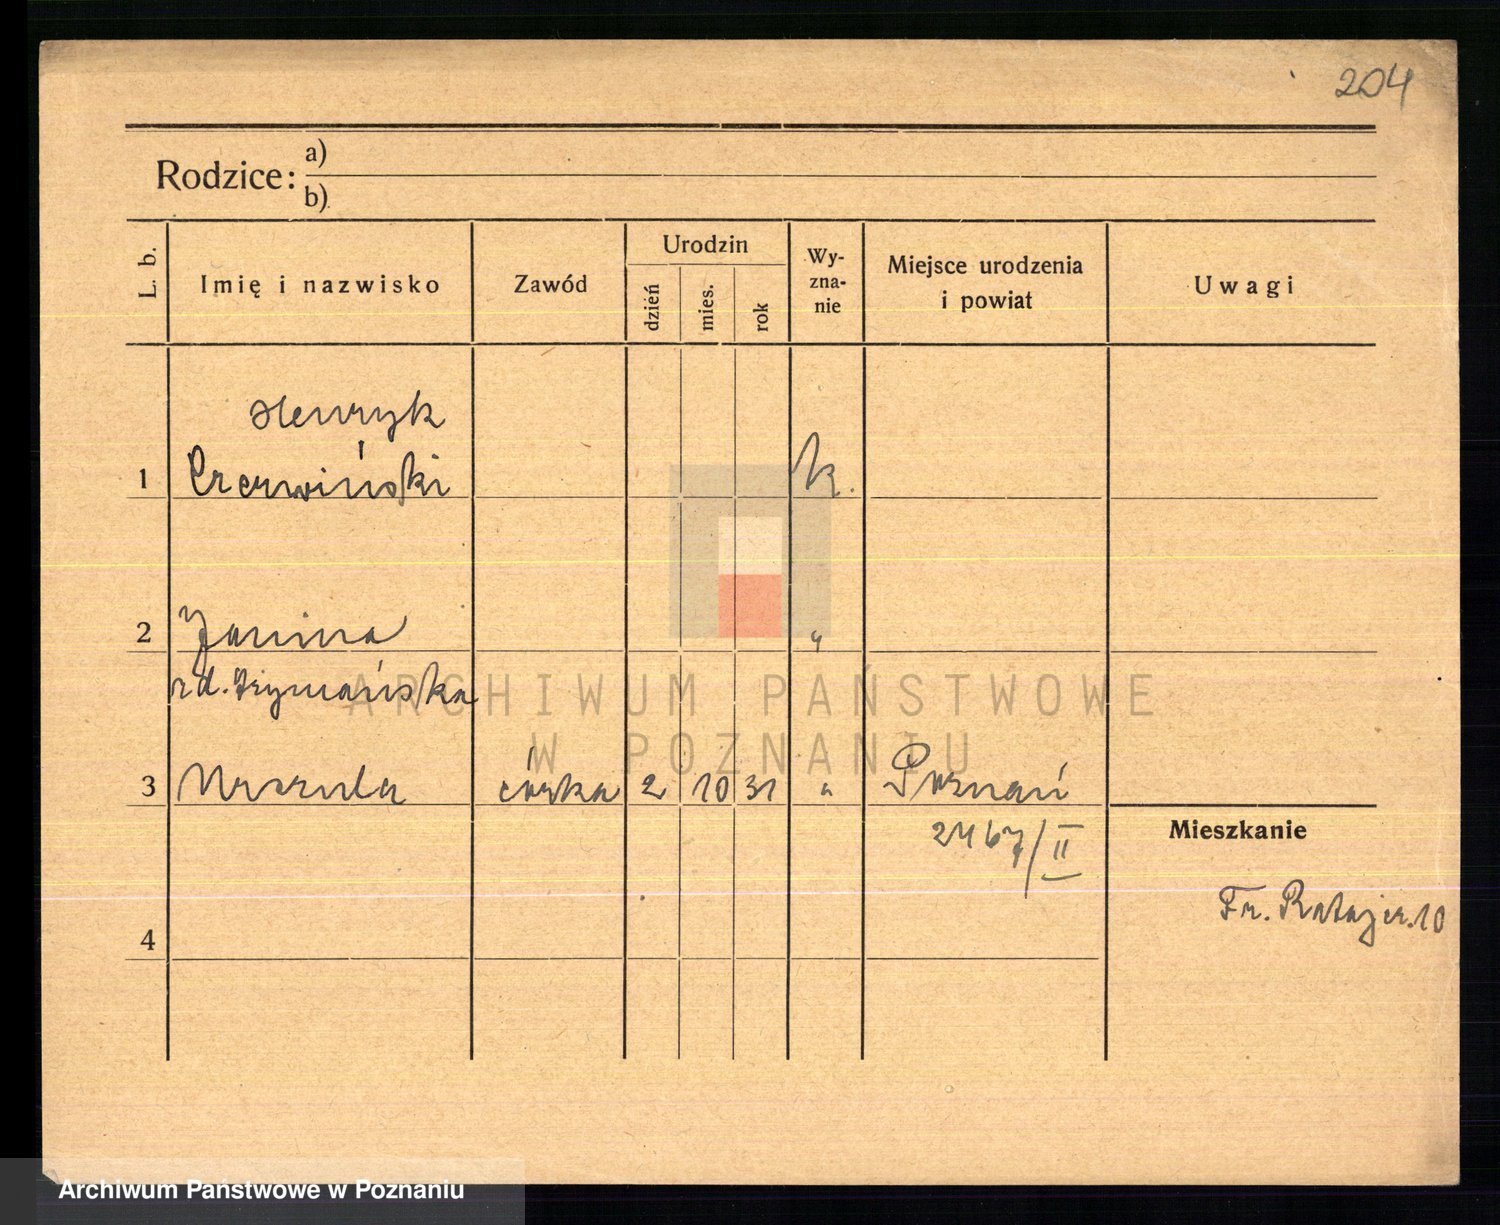 204
Rodzice: a)
b)
L. b.
Imię i nazwisko
Zawód
Urodzin
dzień
mies.
rok
Wy-
zna-
nie
Miejsce urodzenia
i powiat
Uwagi
Henryk
1 Czerwiński k.
2 Janina "
zd. Szymańska
3 Urszula córka 2 10 31 " Poznań
2467/II
Mieszkanie
Fr. Ratajcz. 10
4
ARCHIWUM PAŃSTWOWE
W POZNANIU
Archiwum Państwowe w Poznaniu